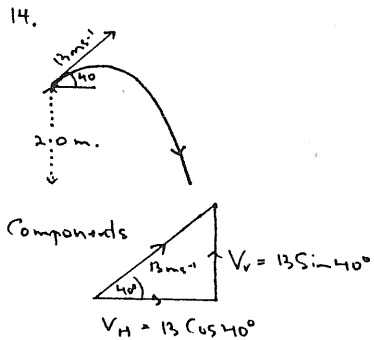 14.
13 ms⁻¹
40
2.0 m.
Components
13 ms⁻¹
40°
Vᵥ = 13 Sin 40°
V_H = 13 Cos 40°